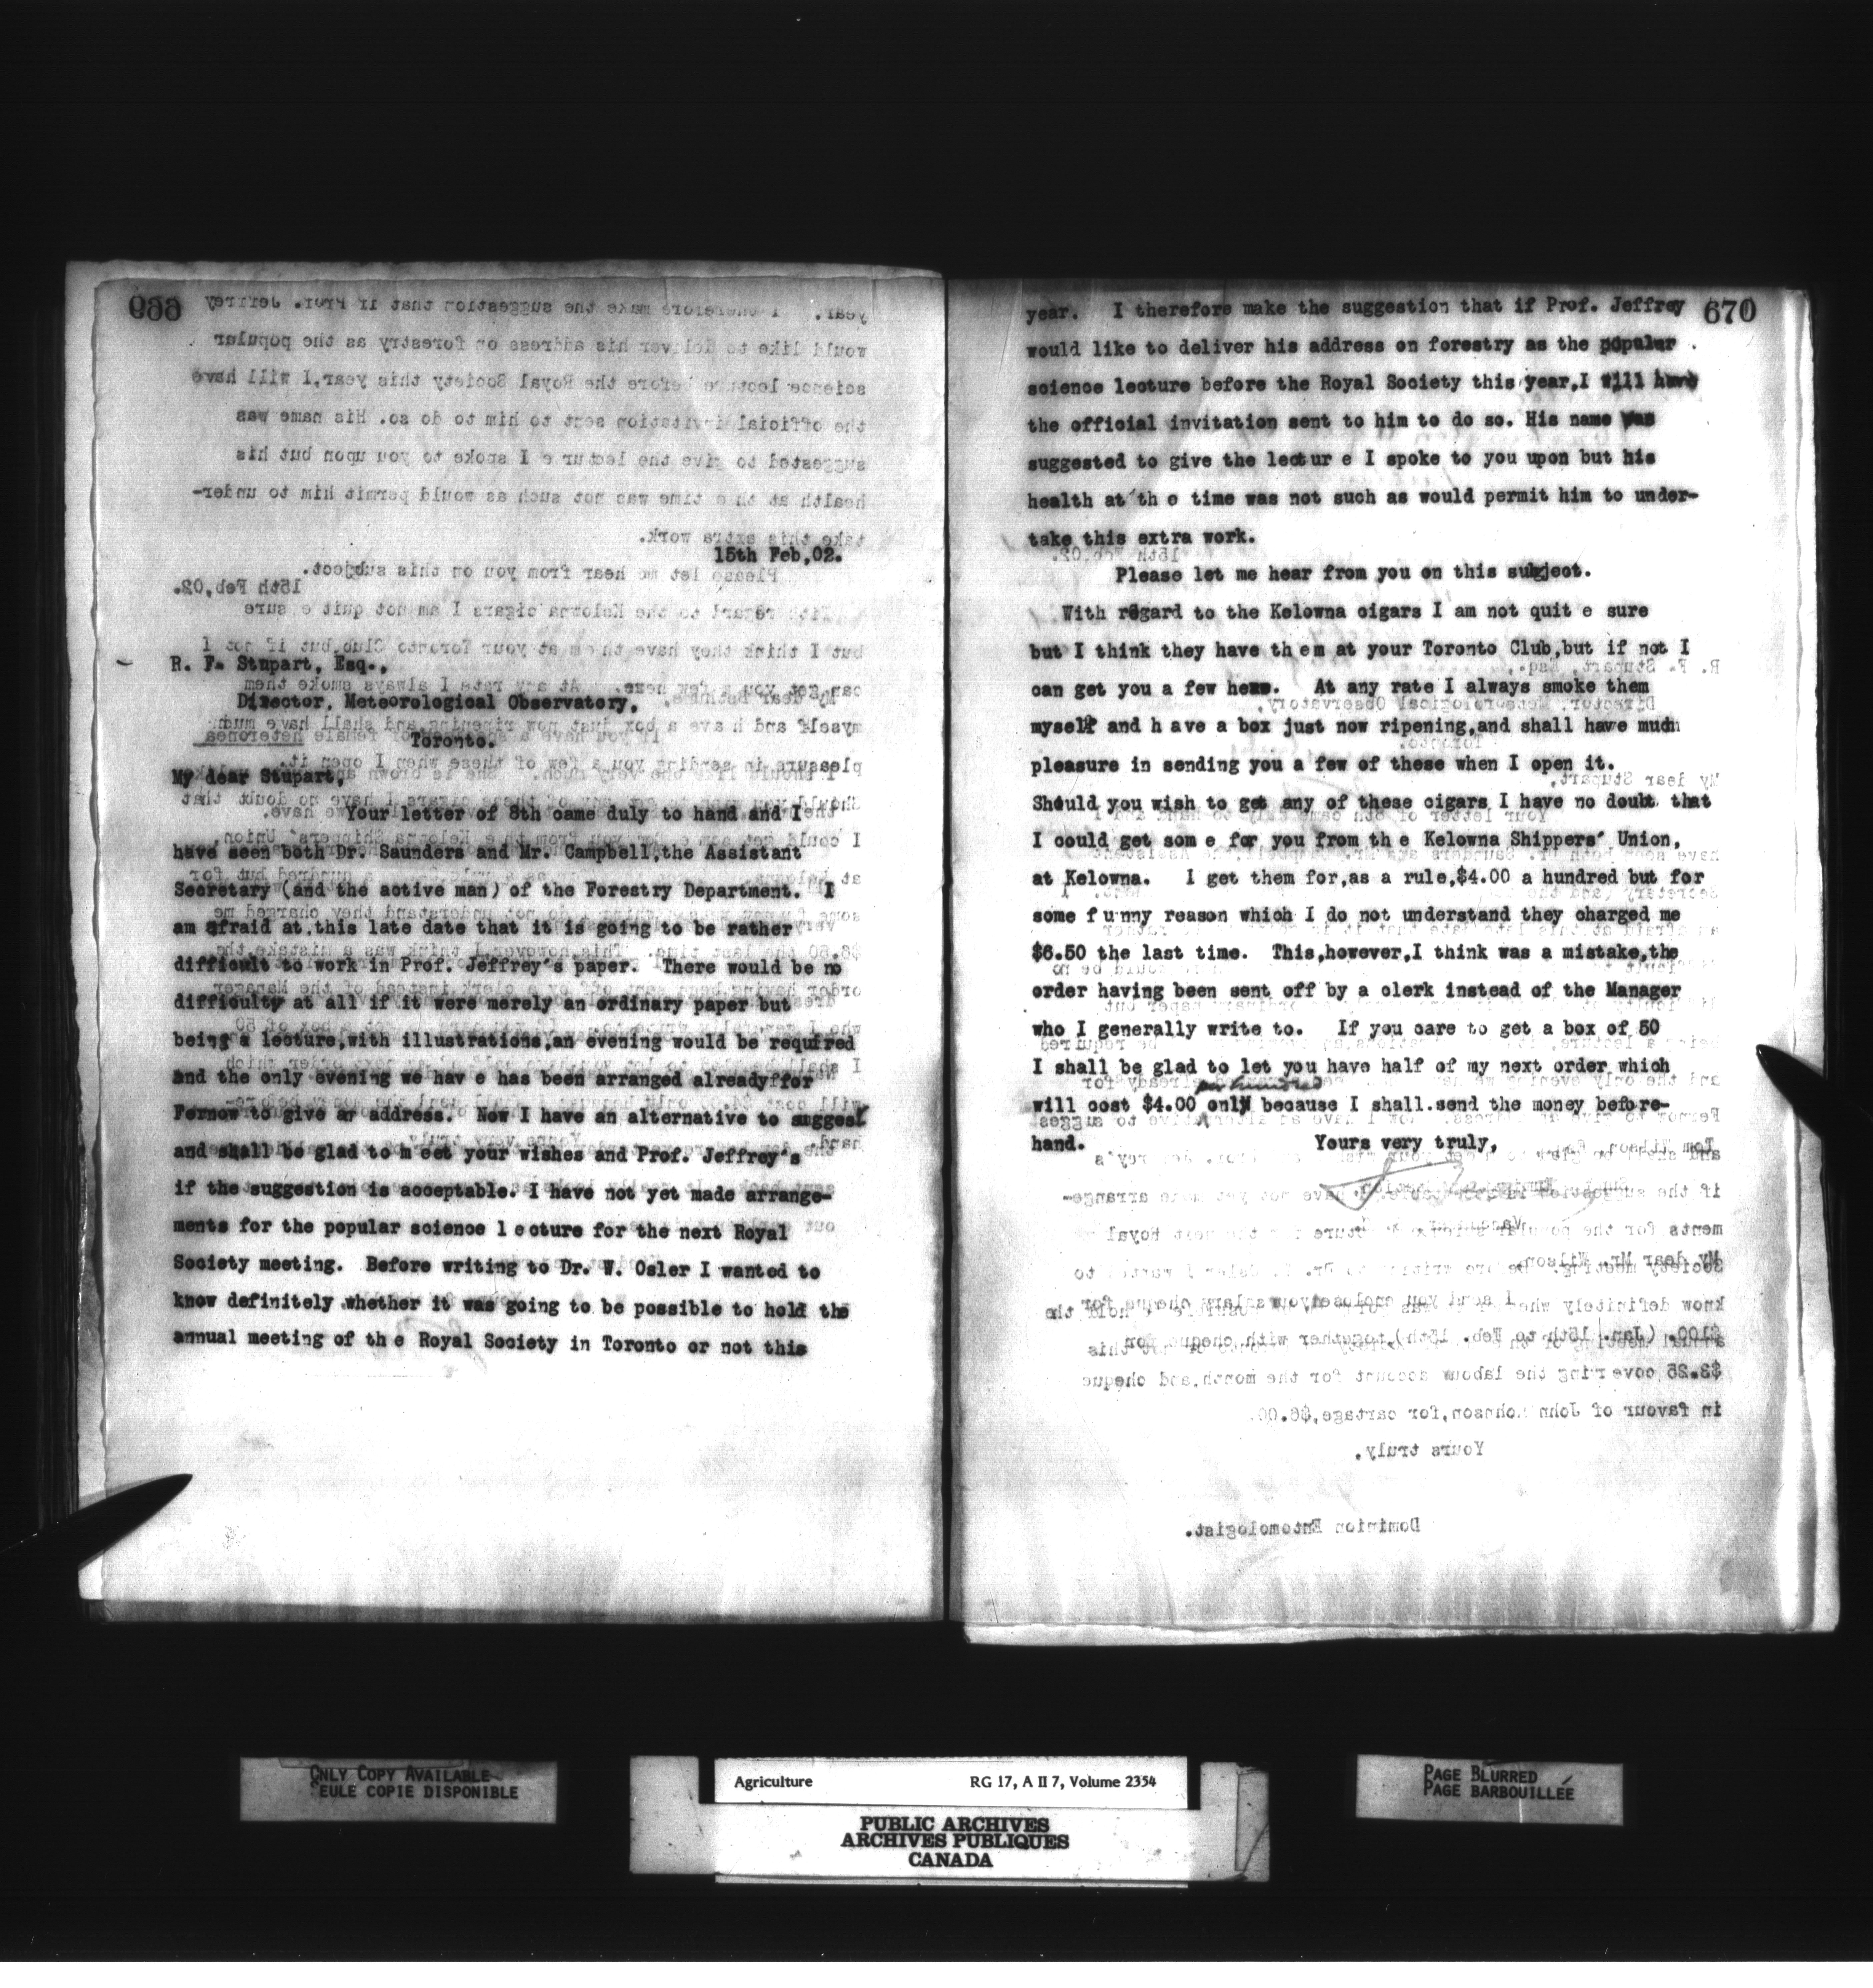 15th Feb,02.
R. F. Stupart, Esq.,
Director, Meteorological Observatory,
Toronto.
My dear Stupart,
Your letter of 8th came duly to hand and I
have seen both Dr. Saunders and Mr. Campbell,the Assistant
Secretary (and the active man) of the Forestry Department. I
am afraid at this late date that it is going to be rather
difficult to work in Prof. Jeffrey's paper. There would be no
difficulty at all if it were merely an ordinary paper but
being a lecture,with illustrations,an evening would be required
and the only evening we hav e has been arranged already for
Fernow to give ar address. Now I have an alternative to suggest
and shall be glad to m eet your wishes and Prof. Jeffrey's
if the suggestion is acceptable. I have not yet made arrange-
ments for the popular science l ecture for the next Royal
Society meeting. Before writing to Dr. W. Osler I wanted to
know definitely whether it was going to be possible to hold the
annual meeting of th e Royal Society in Toronto or not this
670
year. I therefore make the suggestion that if Prof. Jeffrey
would like to deliver his address on forestry as the popular
science lecture before the Royal Society this year,I will have
the official invitation sent to him to do so. His name was
suggested to give the lectur e I spoke to you upon but his
health at th e time was not such as would permit him to under-
take this extra work.
Please let me hear from you on this subject.
With regard to the Kelowna cigars I am not quit e sure
but I think they have th em at your Toronto Club,but if not I
can get you a few here. At any rate I always smoke them
myself and h ave a box just now ripening,and shall have much
pleasure in sending you a few of these when I open it.
Should you wish to get any of these cigars I have no doubt that
I could get som e for you from th e Kelowna Shippers' Union,
at Kelowna. I get them for,as a rule,$4.00 a hundred but for
some f unny reason which I do not understand they charged me
$6.50 the last time. This,however,I think was a mistake,the
order having been sent off by a clerk instead of the Manager
who I generally write to. If you care to get a box of 50
I shall be glad to let you have half of my next order which
per hundred
will cost $4.00 only because I shall send the money before-
hand. Yours very truly,
ONLY COPY AVAILABLE
SEULE COPIE DISPONIBLE
Agriculture RG 17, A II 7, Volume 2354
PUBLIC ARCHIVES
ARCHIVES PUBLIQUES
CANADA
PAGE BLURRED
PAGE BARBOUILLÉE